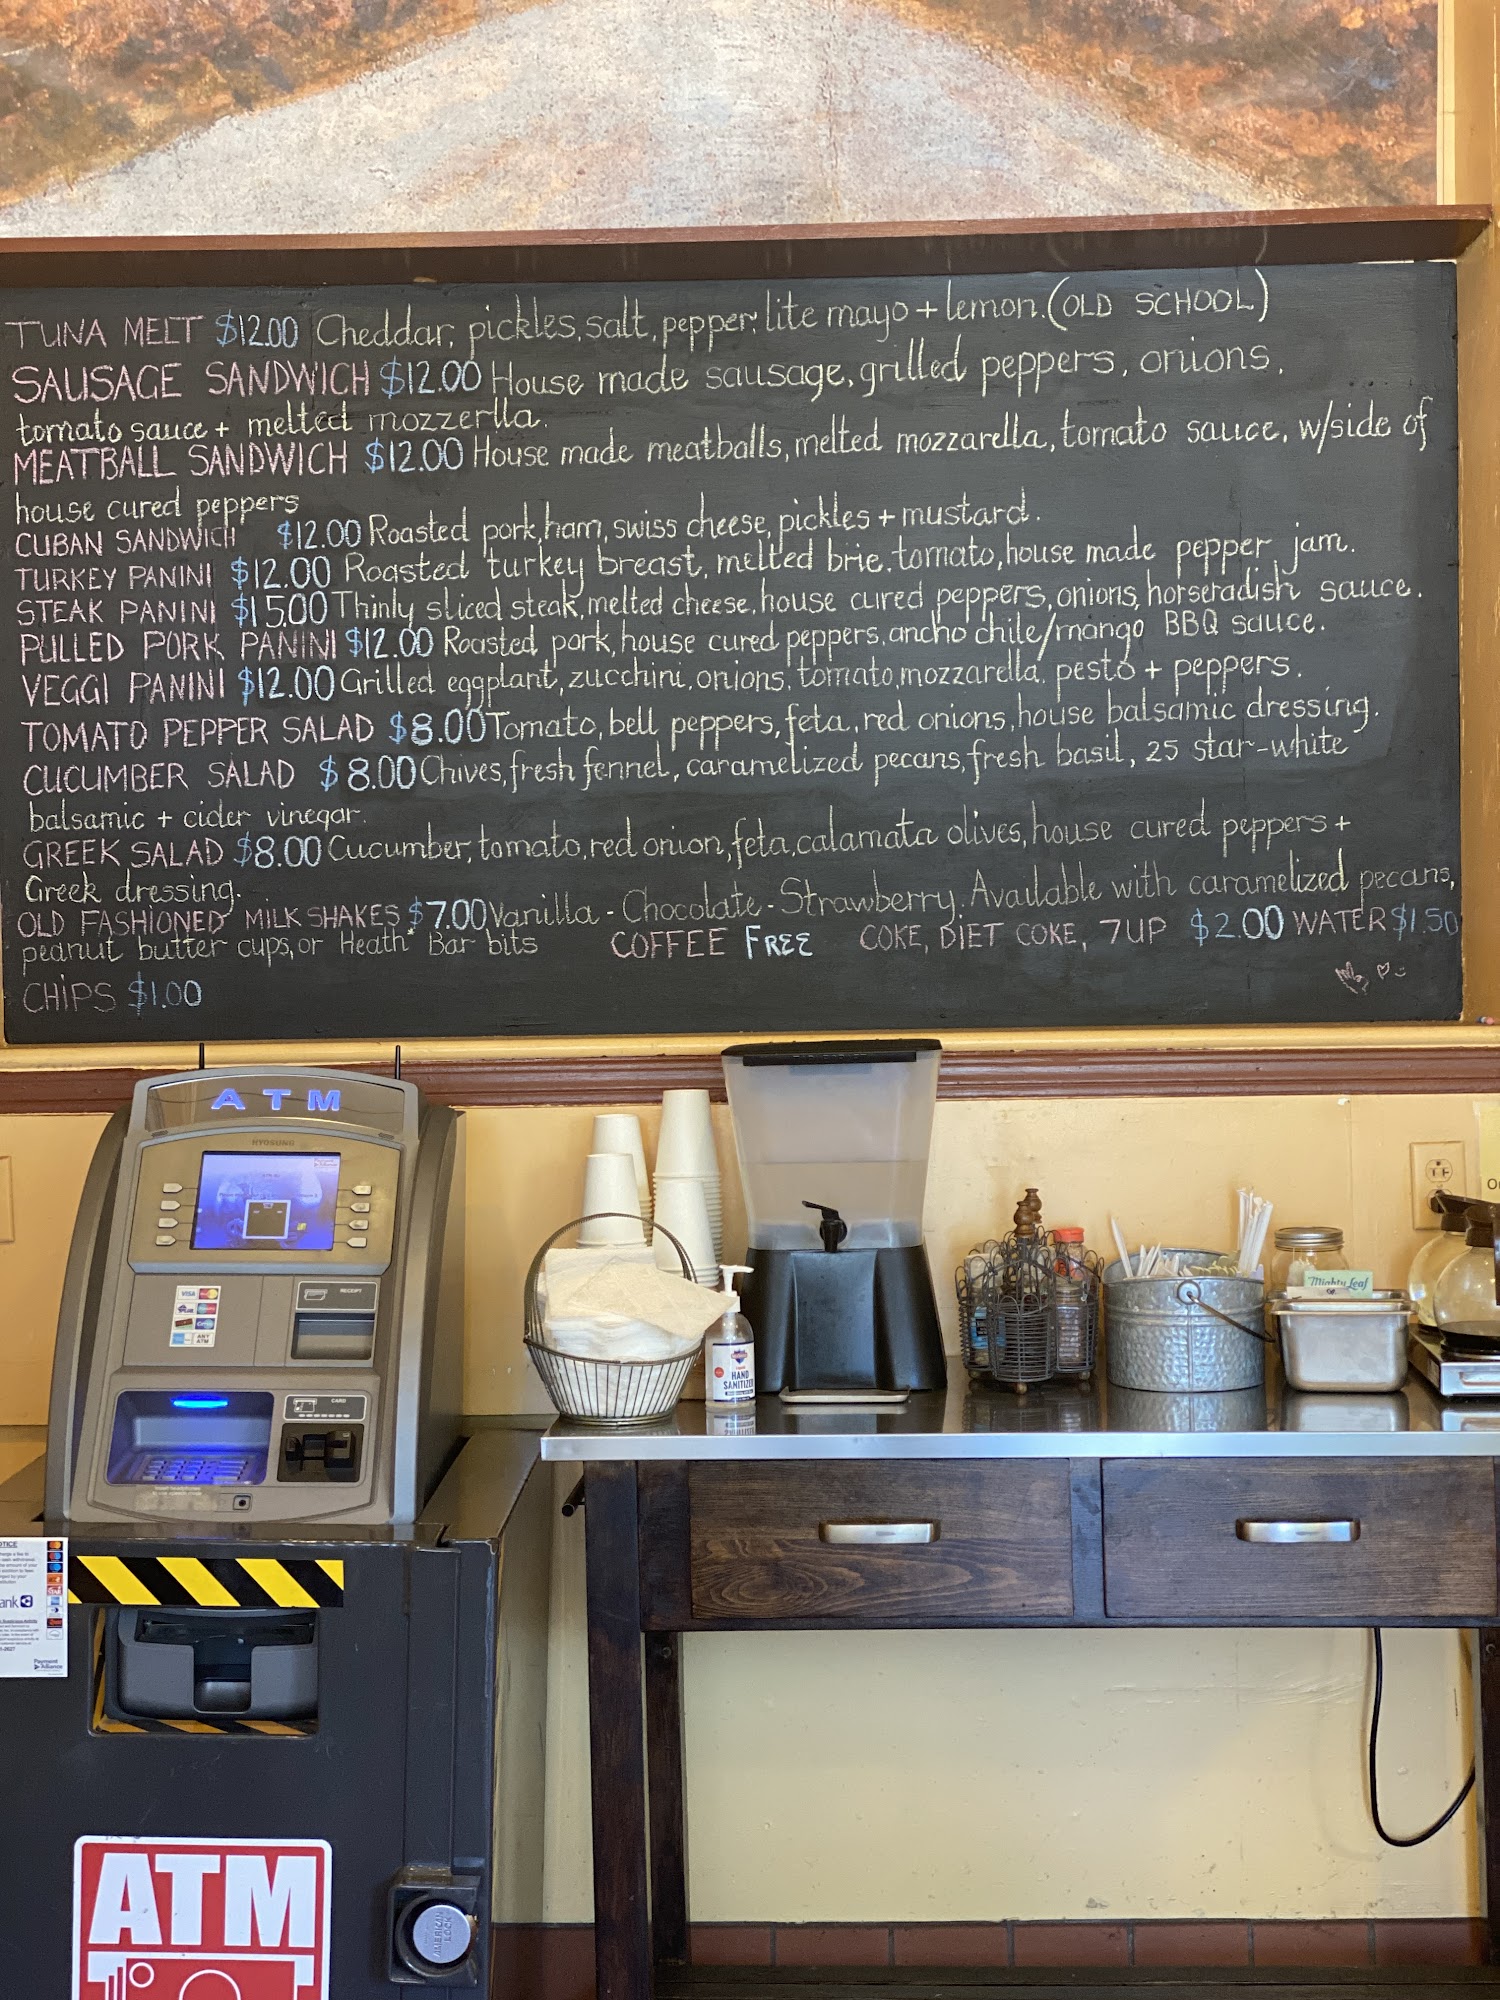 TUNA MELT $12.00 Cheddar, pickles, salt, pepper, lite mayo + lemon. (OLD SCHOOL)
SAUSAGE SANDWICH $12.00 House made sausage, grilled peppers, onions,
tomato sauce + melted mozzerlla.
MEATBALL SANDWICH $12.00 House made meatballs, melted mozzarella, tomato sauce, w/side of
house cured peppers
CUBAN SANDWICH $12.00 Roasted pork, ham, swiss cheese, pickles + mustard.
TURKEY PANINI $12.00 Roasted turkey breast, melted brie, tomato, house made pepper jam.
STEAK PANINI $15.00 Thinly sliced steak, melted cheese, house cured peppers, onions, horseradish sauce.
PULLED PORK PANINI $12.00 Roasted pork, house cured peppers, ancho chile/mango BBQ sauce.
VEGGI PANINI $12.00 Grilled eggplant, zucchini, onions, tomato, mozzarella, pesto + peppers.
TOMATO PEPPER SALAD $8.00 Tomato, bell peppers, feta, red onions, house balsamic dressing.
CUCUMBER SALAD $8.00 Chives, fresh fennel, caramelized pecans, fresh basil, 25 star-white
balsamic + cider vinegar.
GREEK SALAD $8.00 Cucumber, tomato, red onion, feta, calamata olives, house cured peppers +
Greek dressing.
OLD FASHIONED MILK SHAKES $7.00 Vanilla - Chocolate - Strawberry. Available with caramelized pecans,
peanut butter cups, or Heath Bar bits COFFEE FREE COKE, DIET COKE, 7UP $2.00 WATER $1.50
CHIPS $1.00
ATM
HYOSUNG
RECEIPT
VISA
PLUS
ANY ATM
CARD
HAND
SANITIZER
Mighty Leaf
ank
Payment
Alliance
AMERICAN
LOCK
ATM